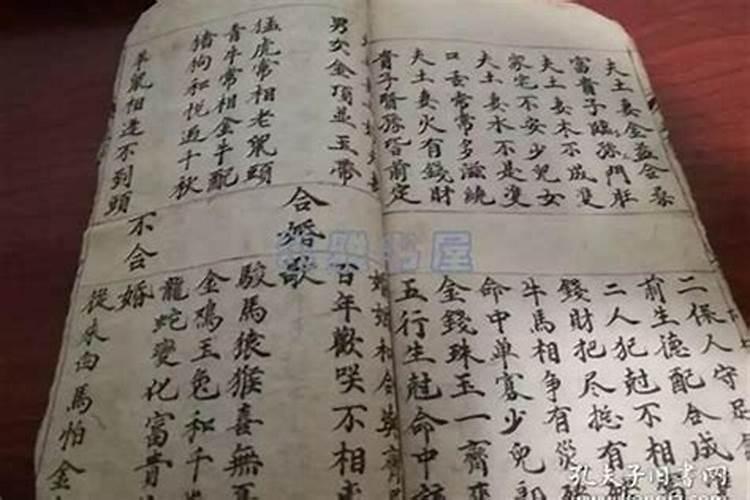 夫土妻金益合
富貴子臨孫門
夫土妻木不成雙
家宅不安少兒女
夫土妻水不是雙
口舌常常多滋繞
夫土妻火有錢財
貴子賢孫皆前定
二保人守足
前生德配合成
二人犯尅不相
錢財把尽挺有
牛馬相争有災
命中单寡少兒郎
金錢珠玉一齊來
五行生尅命中
婚姻和合
男女金項並玉帶
猛虎常相老鼠頭
青牛常相金牛配
猪狗和悦過千秋
羊鼠相逢不到頭
合婚歌
百年歡咲不相
駿馬猿猴喜無
金鳮玉兔和千
龍蛇變化富貴
不合婚
從來白馬怕金
书屋
孔夫子旧书网